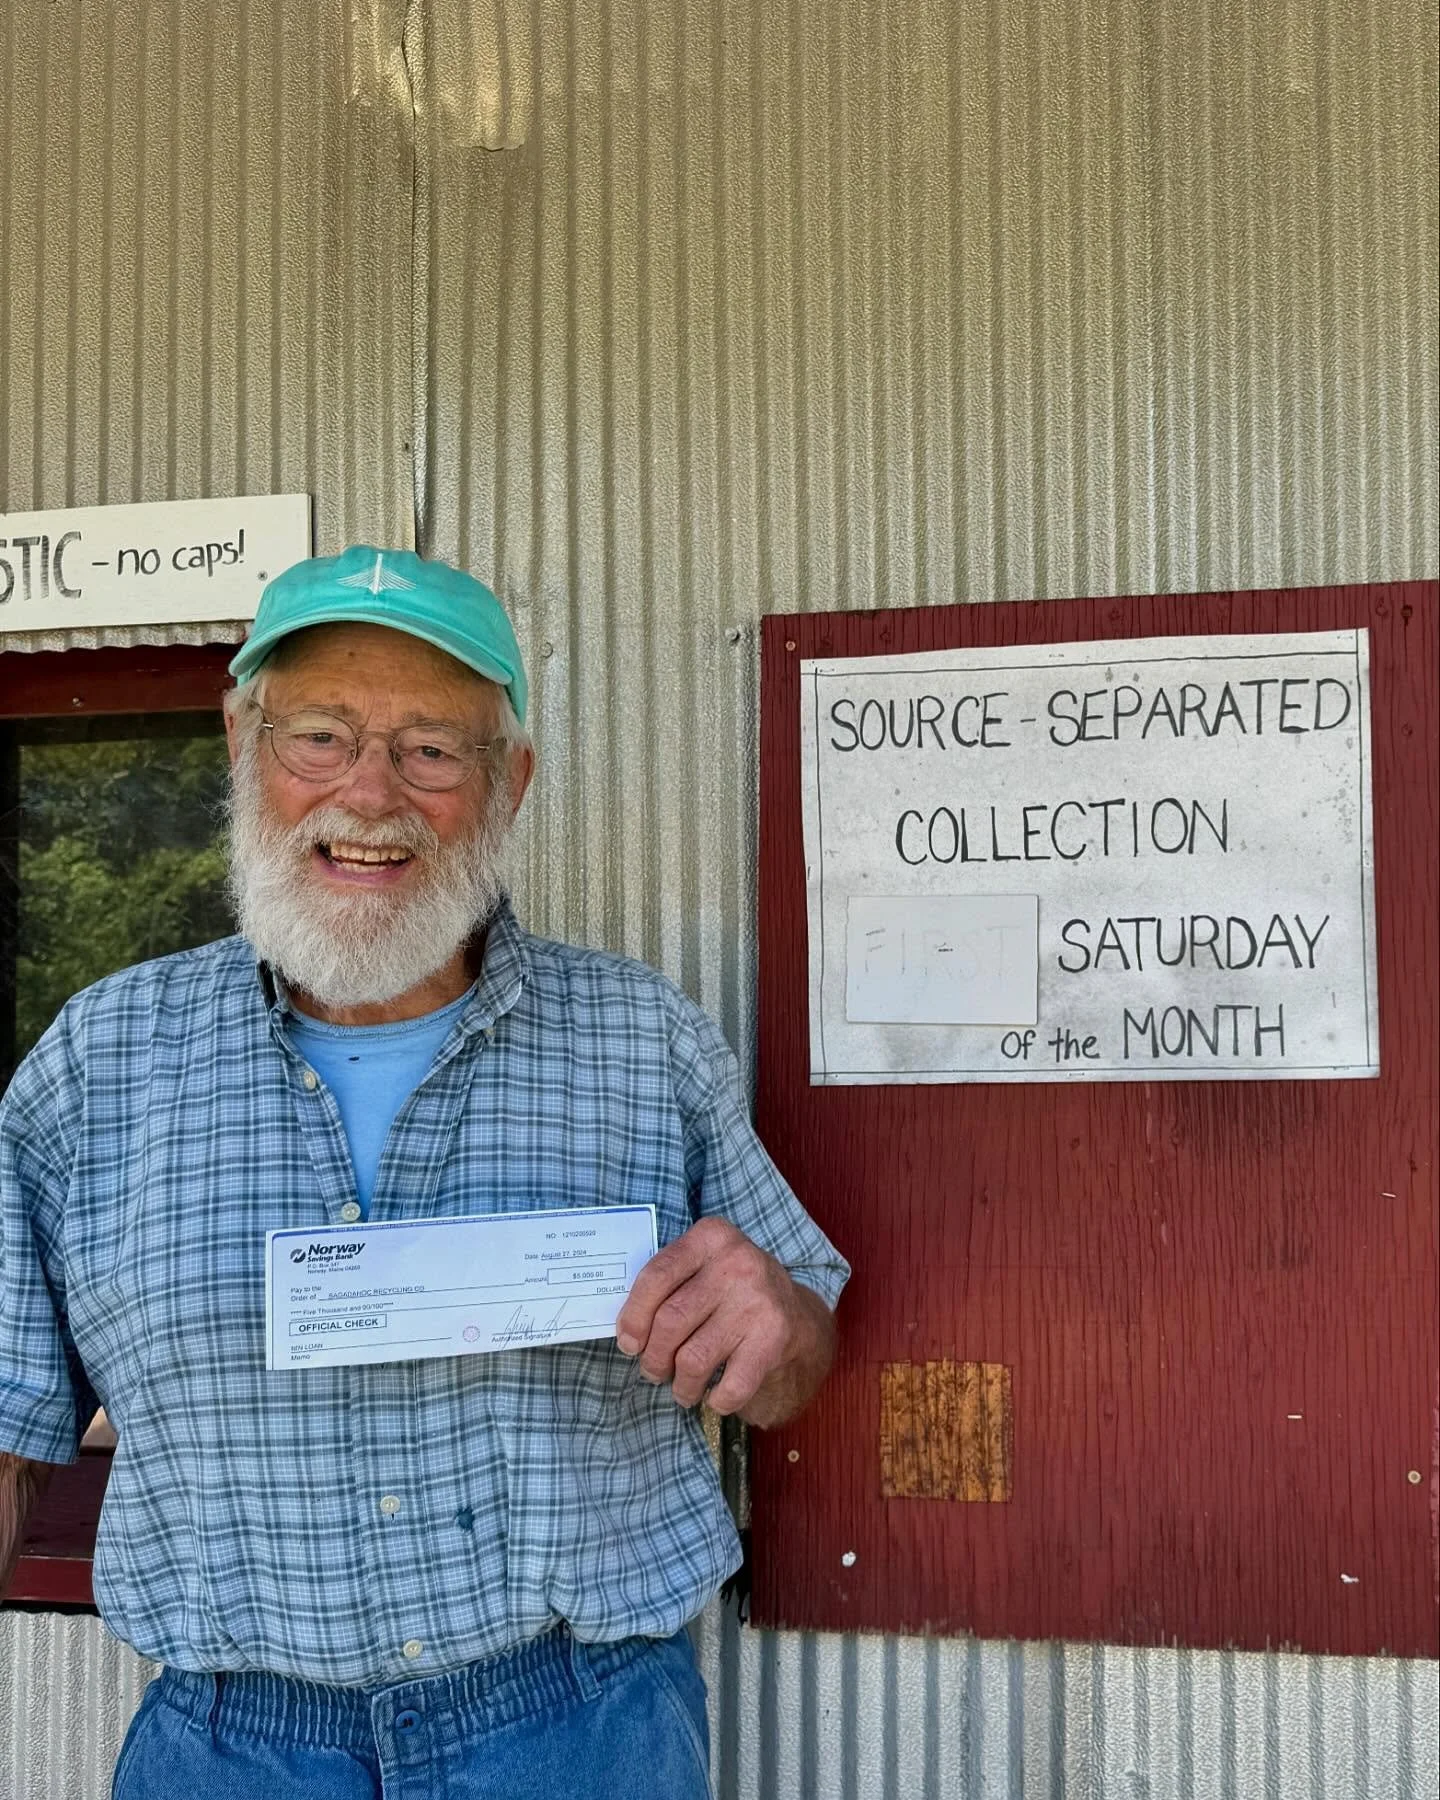 STIC - no caps!
SOURCE-SEPARATED
COLLECTION
FIRST SATURDAY
of the MONTH
Norway
Savings Bank
P.O. Box 347
Norway, Maine 04268
NO. 1210200920
Date August 27, 2024
Amount $5,000.00
Pay to the
Order of SAGADAHOC RECYCLING CO
**** Five Thousand and 00/100**** DOLLARS
OFFICIAL CHECK
Authorized Signature
NIN LOAN
Memo